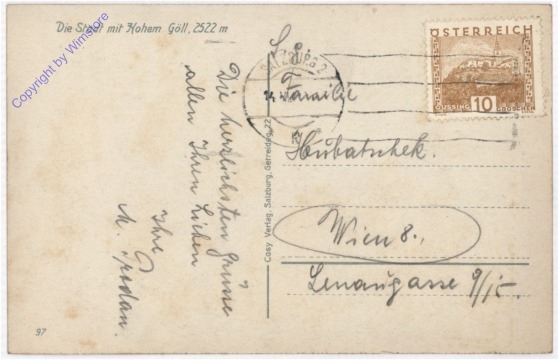 Die Stadt mit Hohem Göll, 2522 m
Copyright by Wimstore
Die herzlichsten Grüsse
allen Ihren Lieben
Ihre
M.
97
Cosy Verlag, Salzburg, Getreideg. 22
SALZBURG 2
ÖSTERREICH
GÜSSING
10
GROSCHEN
S. g.
Familie
Hubatschek.
Wien 8.,
Lenaugasse 9/15.